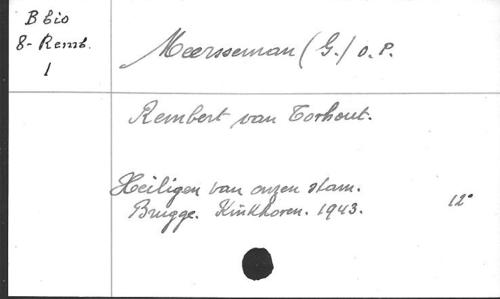 B bio
8- Remb.
1
Meersseman (G.) O.P.
Rembert van Torhout.
Heiligen van onzen stam.
Brugge. Kinkhoren. 1943.
12°